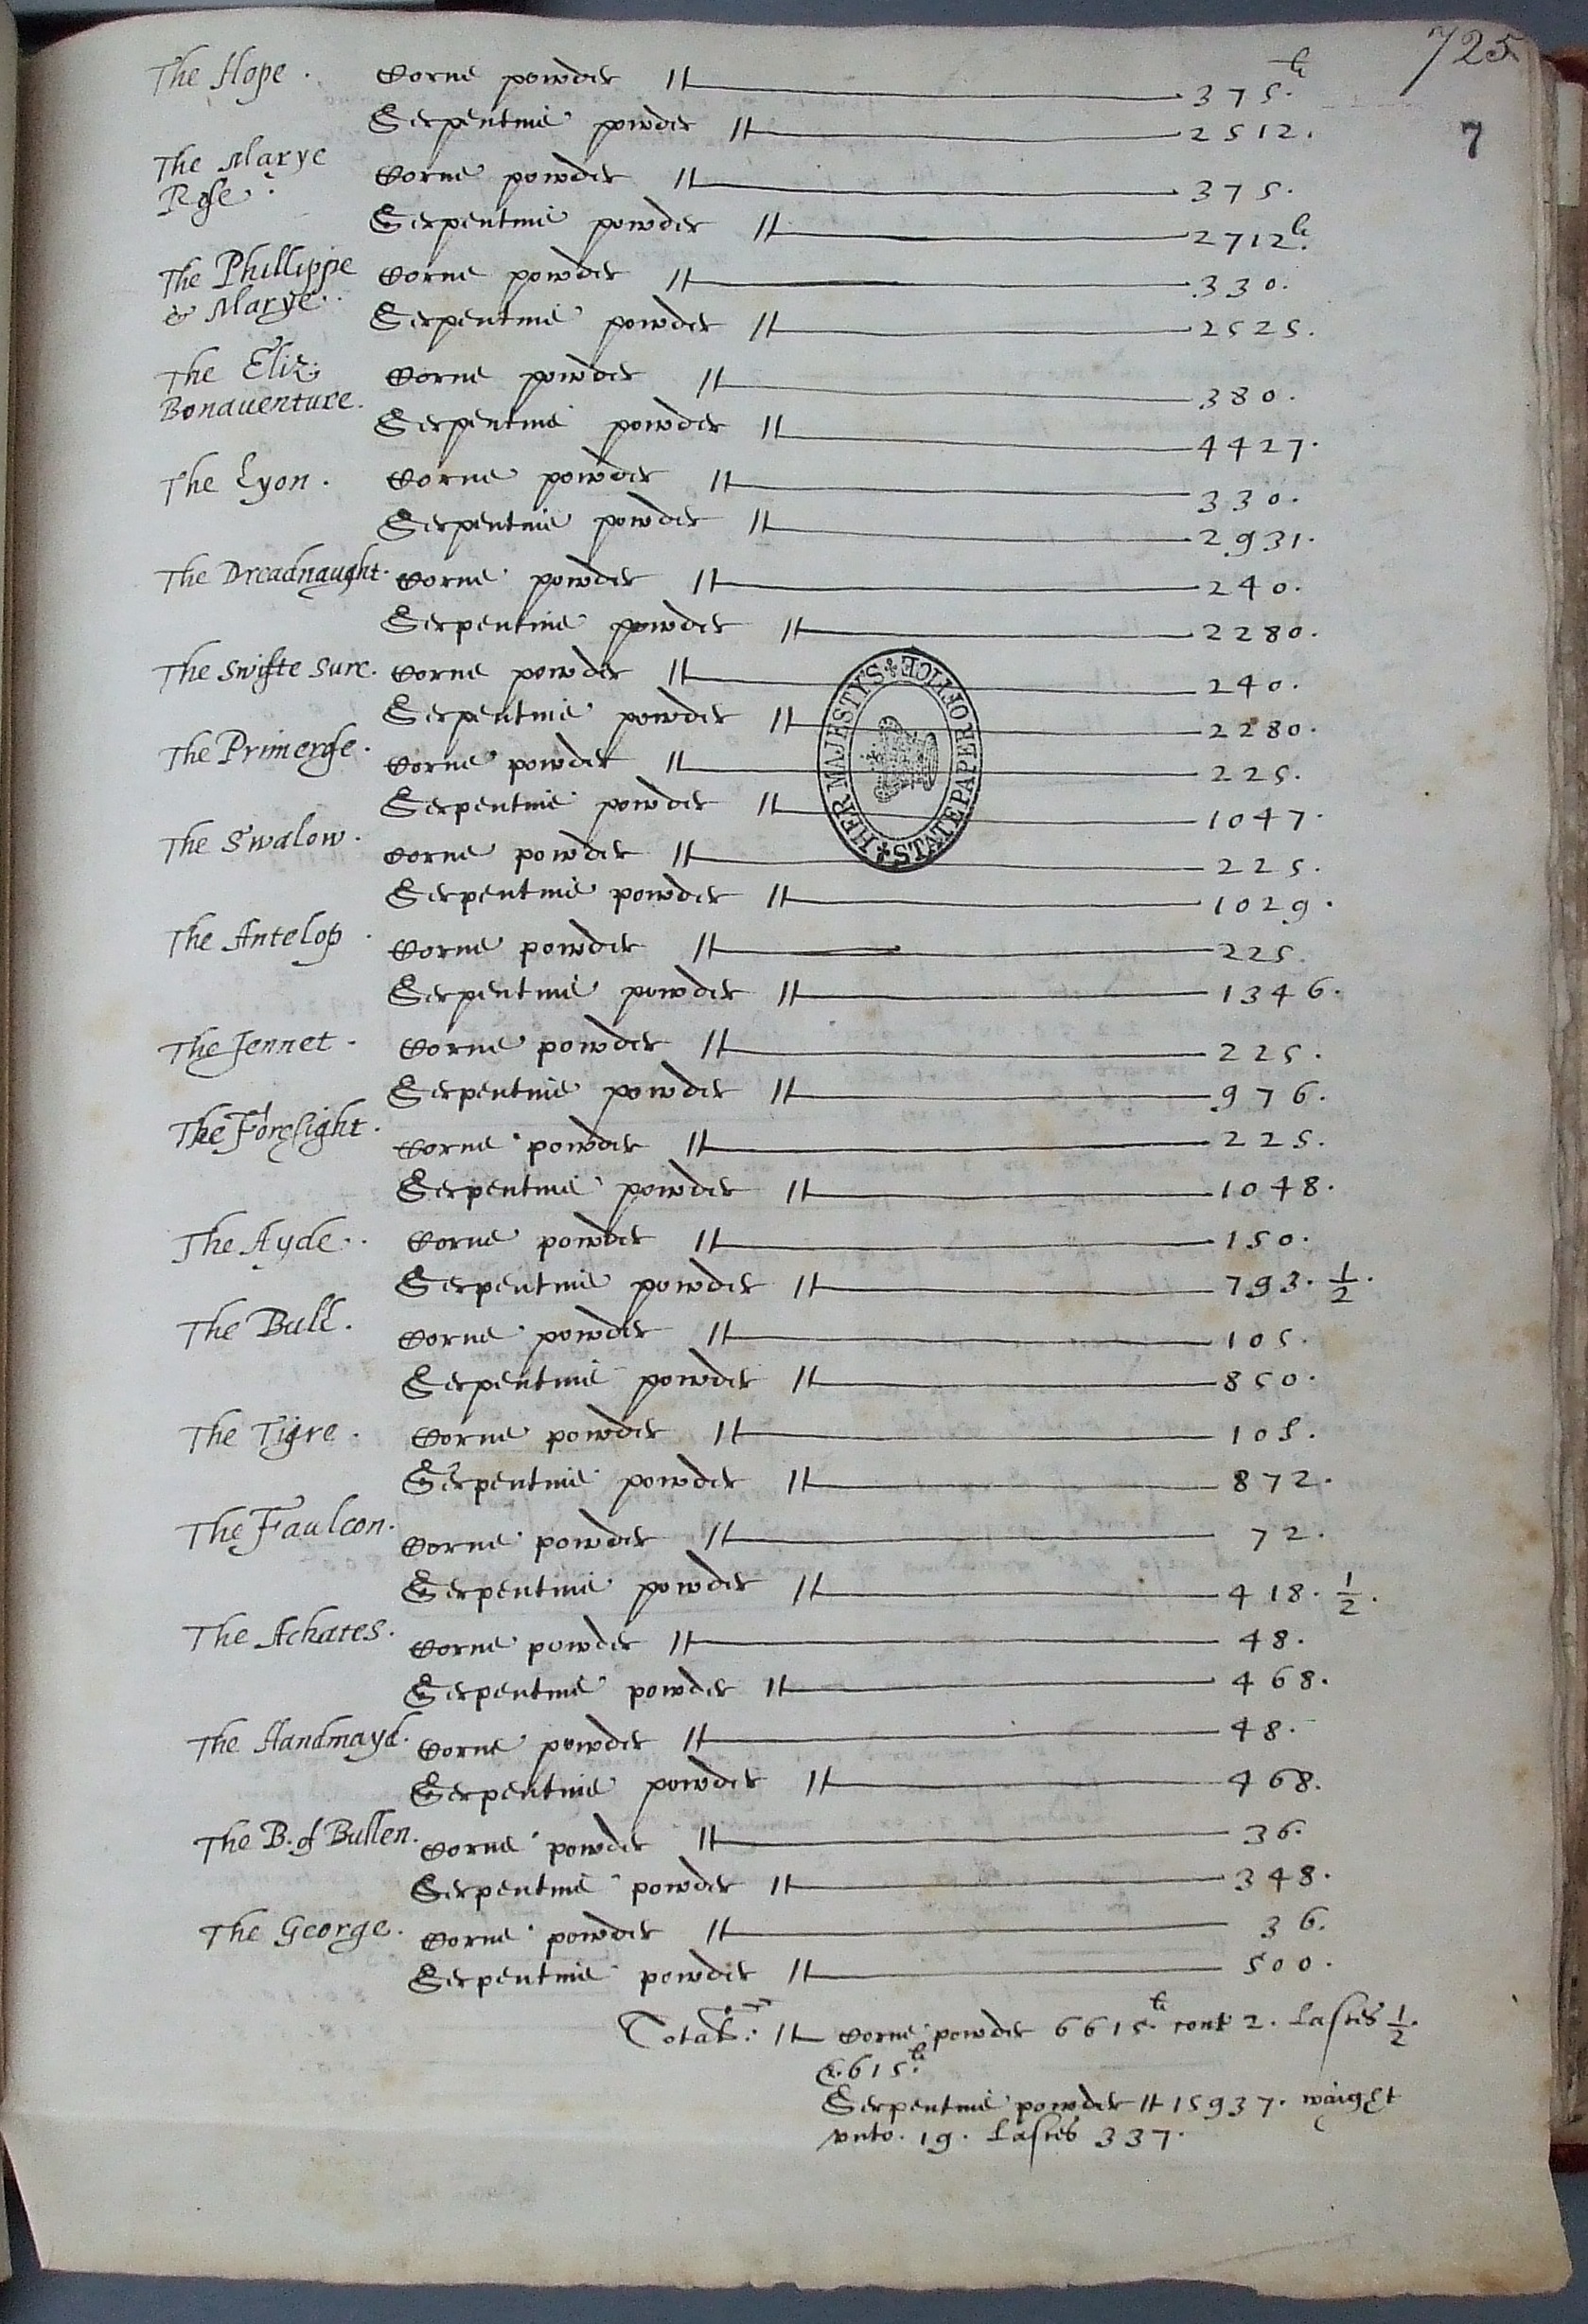 725
7
The Hope . Corne powder // 375. li
Serpentine powder // 2512.
The Marye Rose . Corne powder // 375.
Serpentine powder // 2712 li.
The Phillippe & Marye . Corne powder // 330.
Serpentine powder // 2525.
The Eliz: Bonauenture . Corne powder // 380.
Serpentine powder // 4427.
The Lyon . Corne powder // 330.
Serpentine powder // 2931.
The Dreadnaught . Corne powder // 240.
Serpentine powder // 2280.
The Swifte sure . Corne powder // 240.
Serpentine powder // 2280.
The Primerose . Corne powder // 225.
Serpentine powder // 1047.
The Swalow . Corne powder // 225.
Serpentine powder // 1029.
The Antelop . Corne powder // 225.
Serpentine powder // 1346.
The Jennet . Corne powder // 225.
Serpentine powder // 976.
The Foresight . Corne powder // 225.
Serpentine powder // 1048.
The Ayde . Corne powder // 150.
Serpentine powder // 793. 1/2.
The Bull . Corne powder // 105.
Serpentine powder // 850.
The Tigre . Corne powder // 105.
Serpentine powder // 872.
The Faulcon . Corne powder // 72.
Serpentine powder // 418. 1/2.
The Achates . Corne powder // 48.
Serpentine powder // 468.
The Handmayd . Corne powder // 48.
Serpentine powder // 468.
The B. of Bullen . Corne powder // 36.
Serpentine powder // 348.
The George . Corne powder // 36.
Serpentine powder // 500.
Total: // Corne powder 6615. li cont 2. Lastes 1/2.
&. 615. li
Serpentine powder // 15937. waight
vnto. 19. Lastes 337.
HER MAJESTY'S STATE PAPER OFFICE